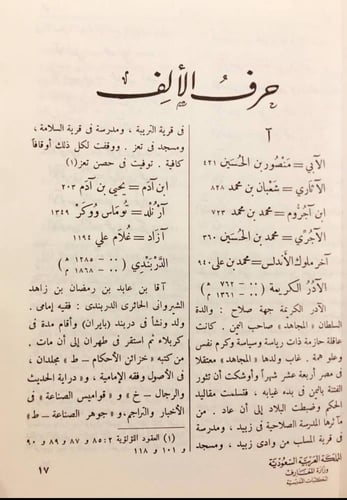 حرفُ الألِف
آ
الآبي = مَنْصُور بن الحُسَيْن ٤٢١
الآثاري = شَعْبان بن محمد ٨٢٨
ابن آجُرُّوم = محمد بن محمد ٧٢٣
الآجُرِّي = محمد بن الحُسَيْن ٣٦٠
آخر ملوك الأندلس = محمد بن علي ٩٤٠
الآدُر الكَريمة (٠٠ - ٧٦٢ هـ / ٠٠ - ١٣٦١ م)
الآدر الكريمة جهة صلاح : والدة
السلطان « المجاهد » صاحب اليمن . كانت
عاقلة حازمة ذات رياسة وسياسة وكرم نفس
وعلو همة . غاب ولدها « المجاهد » معتقلا
في مصر أربعة عشر شهراً وأوشكت أن تثور
الفتنة باليمن في مدة غيابه ، فتسلمت مقاليد
الحكم وضبطت البلاد إلى أن عاد . من
مآثرها المدرسة الصلاحية في زبيد ، ومدرسة
في قرية المسلب من وادى زبيد ، ومسجد
في قرية التريبة ، ومدرسة في قرية السلامة ،
ومسجد في تعز . ووقفت لكل ذلك أوقافاً
كافية . توفيت في حصن تعز (١)
ابن آدَم = يحيى بن آدَم ٢٠٣
آرْنُلْد = تُوماس وُوكَر ١٣٤٩
آزاد = غُلام علي ١١٩٤
الدَّرْبَنْدي (٠٠ - ١٢٨٥ هـ / ٠٠ - ١٨٦٨ م)
آقا بن عابد بن رمضان بن زاهد
الشيروانى الحائرى الدربندى : فقيه إمامى .
ولد ونشأ في دربند (بايران) وأقام مدة في
كربلاء ثم استقر في طهران إلى أن مات .
من كتبه « خزائن الأحكام - ط » مجلدان ،
في الأصول وفقه الإمامية ، و « دراية الحديث
والرجال - خ » و « قواميس الصناعة » في
الأخبار والتراجم ، و « جوهر الصناعة - ط »
(١) العقود اللؤلؤية ٢ : ٨٥ و ٨٧ و ٨٩ و ٩٠
و ١٠١ و ١١٨
١٧
المملكة العربية السعودية
وزارة المعارف
المكتبات المدرسية